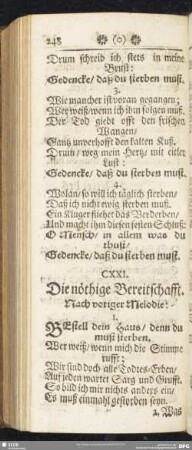 248 (0)
Drum schreib ich stets in meine
Brust:
Gedencke/ daß du sterben must.
3.
Wie mancher ist voran gegangen;
Wer weiß/ wenn ich ihm folgen muß.
Der Tod giebt offt den frischen
Wangen/
Gantz unverhofft den kalten Kuß.
Drum/ weg mein Hertz/ mit eitler
Lust:
Gedencke/ daß du sterben must.
4.
Wolan/ so will ich täglich sterben/
Daß ich nicht ewig sterben muß.
Ein Kluger fliehet das Verderben/
Und macht ihm diesen festen Schluß:
O Mensch/ in allem was du
thust/
Gedencke/ daß du sterben must.
CXXI.
Die nöthige Bereitschafft.
Nach voriger Melodie:
1.
BEstell dein Haus/ denn du
must sterben,
Wer weiß/ wenn mich die Stimme
rufft;
Wir sind doch alle Todtes-Erben/
Auf jeden wartet Sarg und Grufft.
So bild ich mir nichts anders ein/
Es muß einmahl gestorben seyn.
2. Was